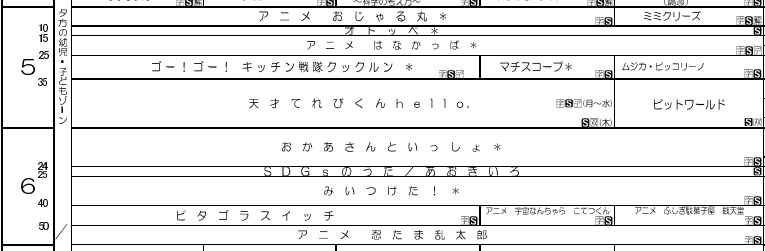 ~科学の考え方~
アニメ おじゃる丸＊
字S
ミミクリーズ
字S解
10
オトッペ＊
S
15
アニメ はなかっぱ＊
字S
25
5
ゴー！ゴー！ キッチン戦隊クックルン ＊
マチスコープ＊
字S
ムジカ・ピッコリーノ
字S
35
夕方の幼児・子どもゾーン
天才てれびくんhello,
字S(月～水)
S双(木)
ビットワールド
S双
おかあさんといっしょ＊
字S
24
SDGsのうた/あおきいろ
S
25
6
みいつけた！＊
字S
40
ピタゴラスイッチ
字S
アニメ 宇宙なんちゃら こてつくん
字S
アニメ ふしぎ駄菓子屋 銭天堂
字S
50
アニメ 忍たま乱太郎
字S